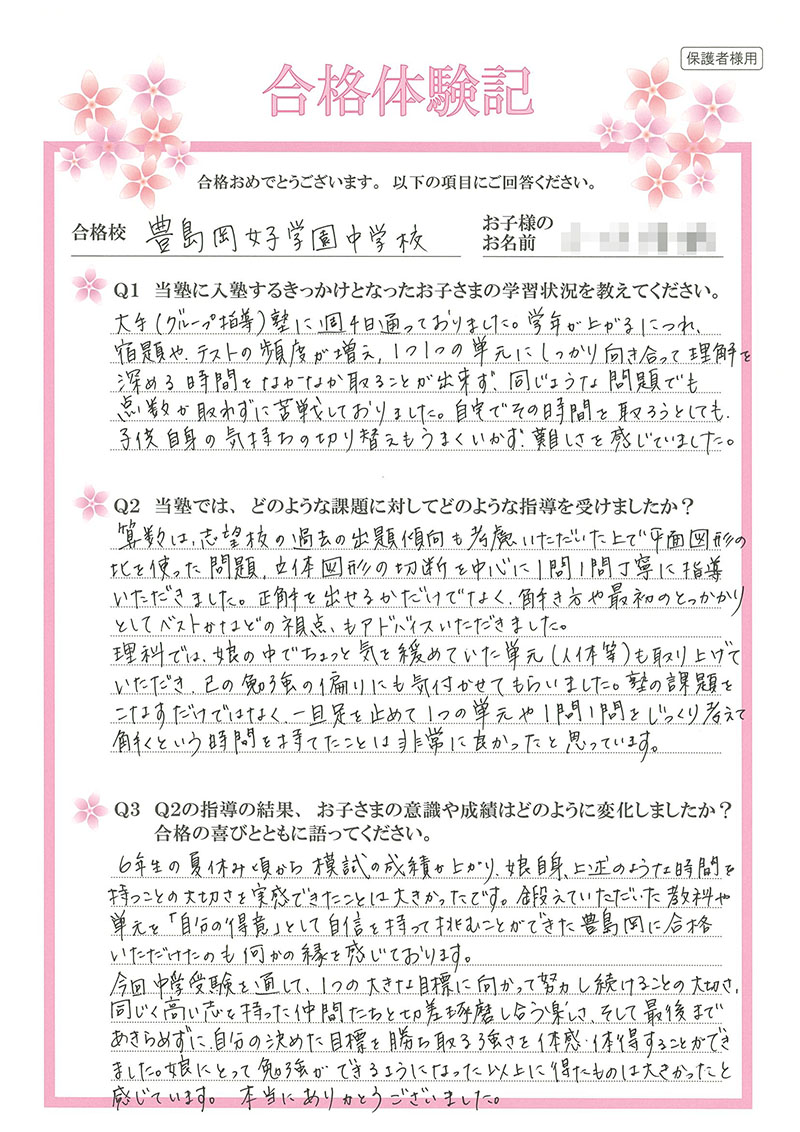 保護者様用
合格体験記
合格おめでとうございます。以下の項目にご回答ください。
合格校 豊島岡女子学園中学校
お子様の
お名前
Q1 当塾に入塾するきっかけとなったお子さまの学習状況を教えてください。
大手(グループ指導)塾に週4日通っておりました。学年が上がるにつれ、
宿題や、テストの頻度が増え、1つ1つの単元にしっかり向き合って理解を
深める時間をなかなか取ることが出来ず、同じような問題でも
点数が取れずに苦戦しておりました。自宅でその時間を取ろうとしても、
子供自身の気持ちの切り替えもうまくいかず、難しさを感じていました。
Q2 当塾では、どのような課題に対してどのような指導を受けましたか？
算数は、志望校の過去の出題傾向も考慮いただいた上で平面図形の
比を使った問題、立体図形の切断を中心に1問1問丁寧に指導
いただきました。正解を出せるかだけでなく、解き方や最初のとっかかり
としてベストかなどの視点もアドバイスいただきました。
理科では、娘の中でちょっと気を緩めていた単元(人体等)も取り上げて
いただき、己の勉強の偏りにも気付かせてもらいました。塾の課題を
こなすだけではなく、一旦足を止めて1つの単元や1問1問をじっくり考えて
解くという時間を持てたことは非常に良かったと思っています。
Q3 Q2の指導の結果、お子さまの意識や成績はどのように変化しましたか？
合格の喜びとともに語ってください。
6年生の夏休み頃から模試の成績が上がり、娘自身、上述のような時間を
持つことの大切さを実感できたことは大きかったです。鍛えていただいた教科や
単元を「自分の得意」として自信を持って挑むことができた豊島岡に合格
いただけたのも何かの縁を感じております。
今回中学受験を通して、1つの大きな目標に向かって努力し続けることの大切さ、
同じく高い志を持った仲間たちと切差琢磨し合う楽しさ、そして最後まで
あきらめずに、自分の決めた目標を勝ち取る強さを体感・体得することができ
ました。娘にとって勉強ができるようになった以上に得たものは大きかったと
感じています。 本当にありがとうございました。